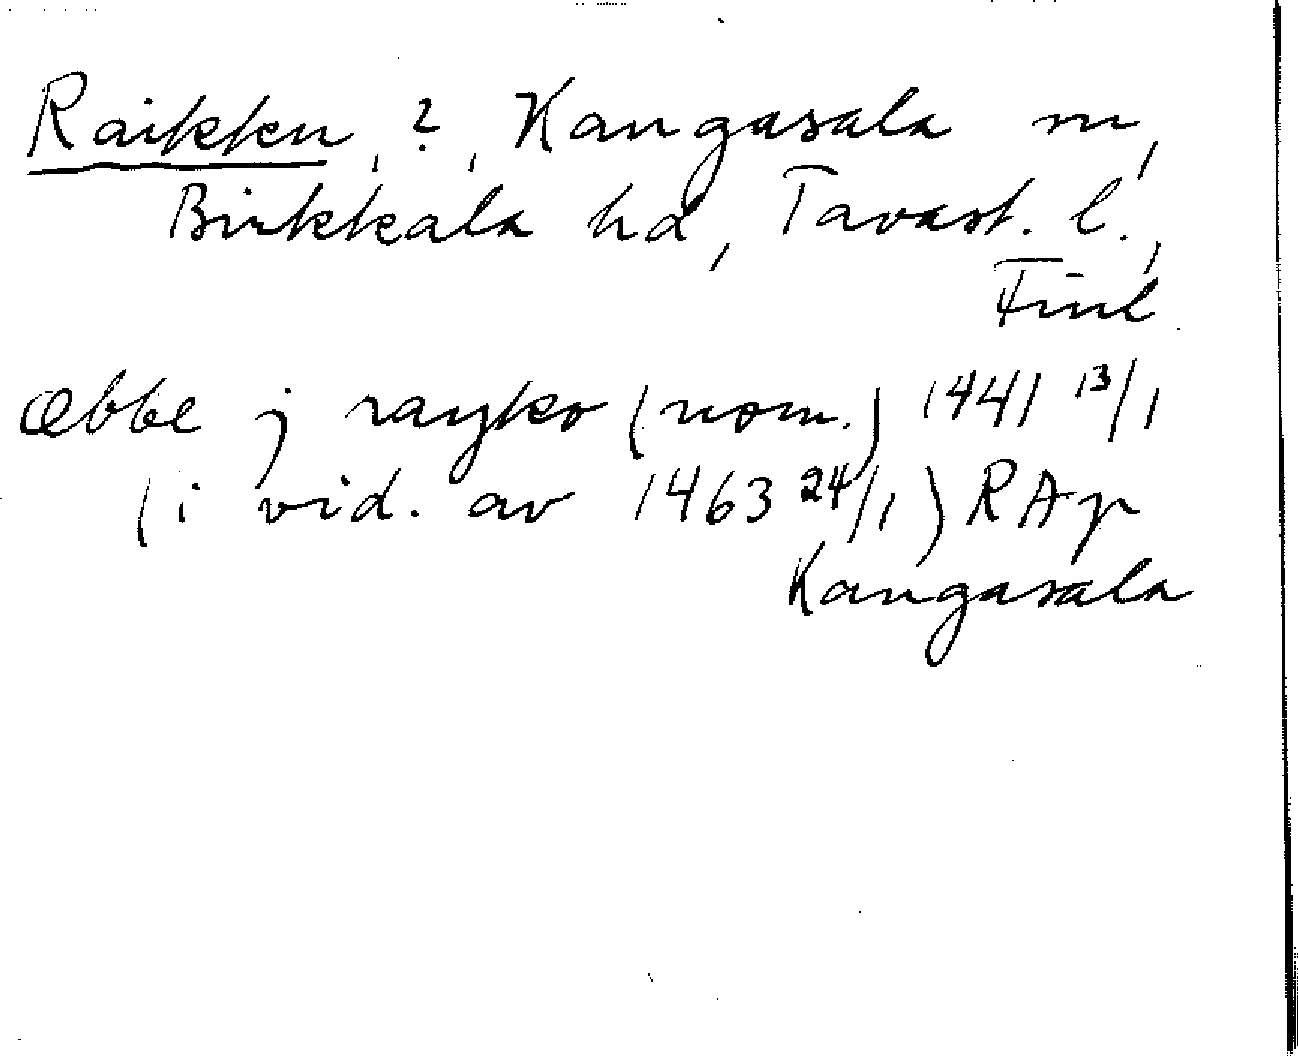 Raikku, ?, Kangasala sn,
Birkkala hd, Tavast. l.,
Finl
Æbbe j rayko (nom.) 1441 13/1
(i vid. av 1463 24/1) RAp
Kangasala